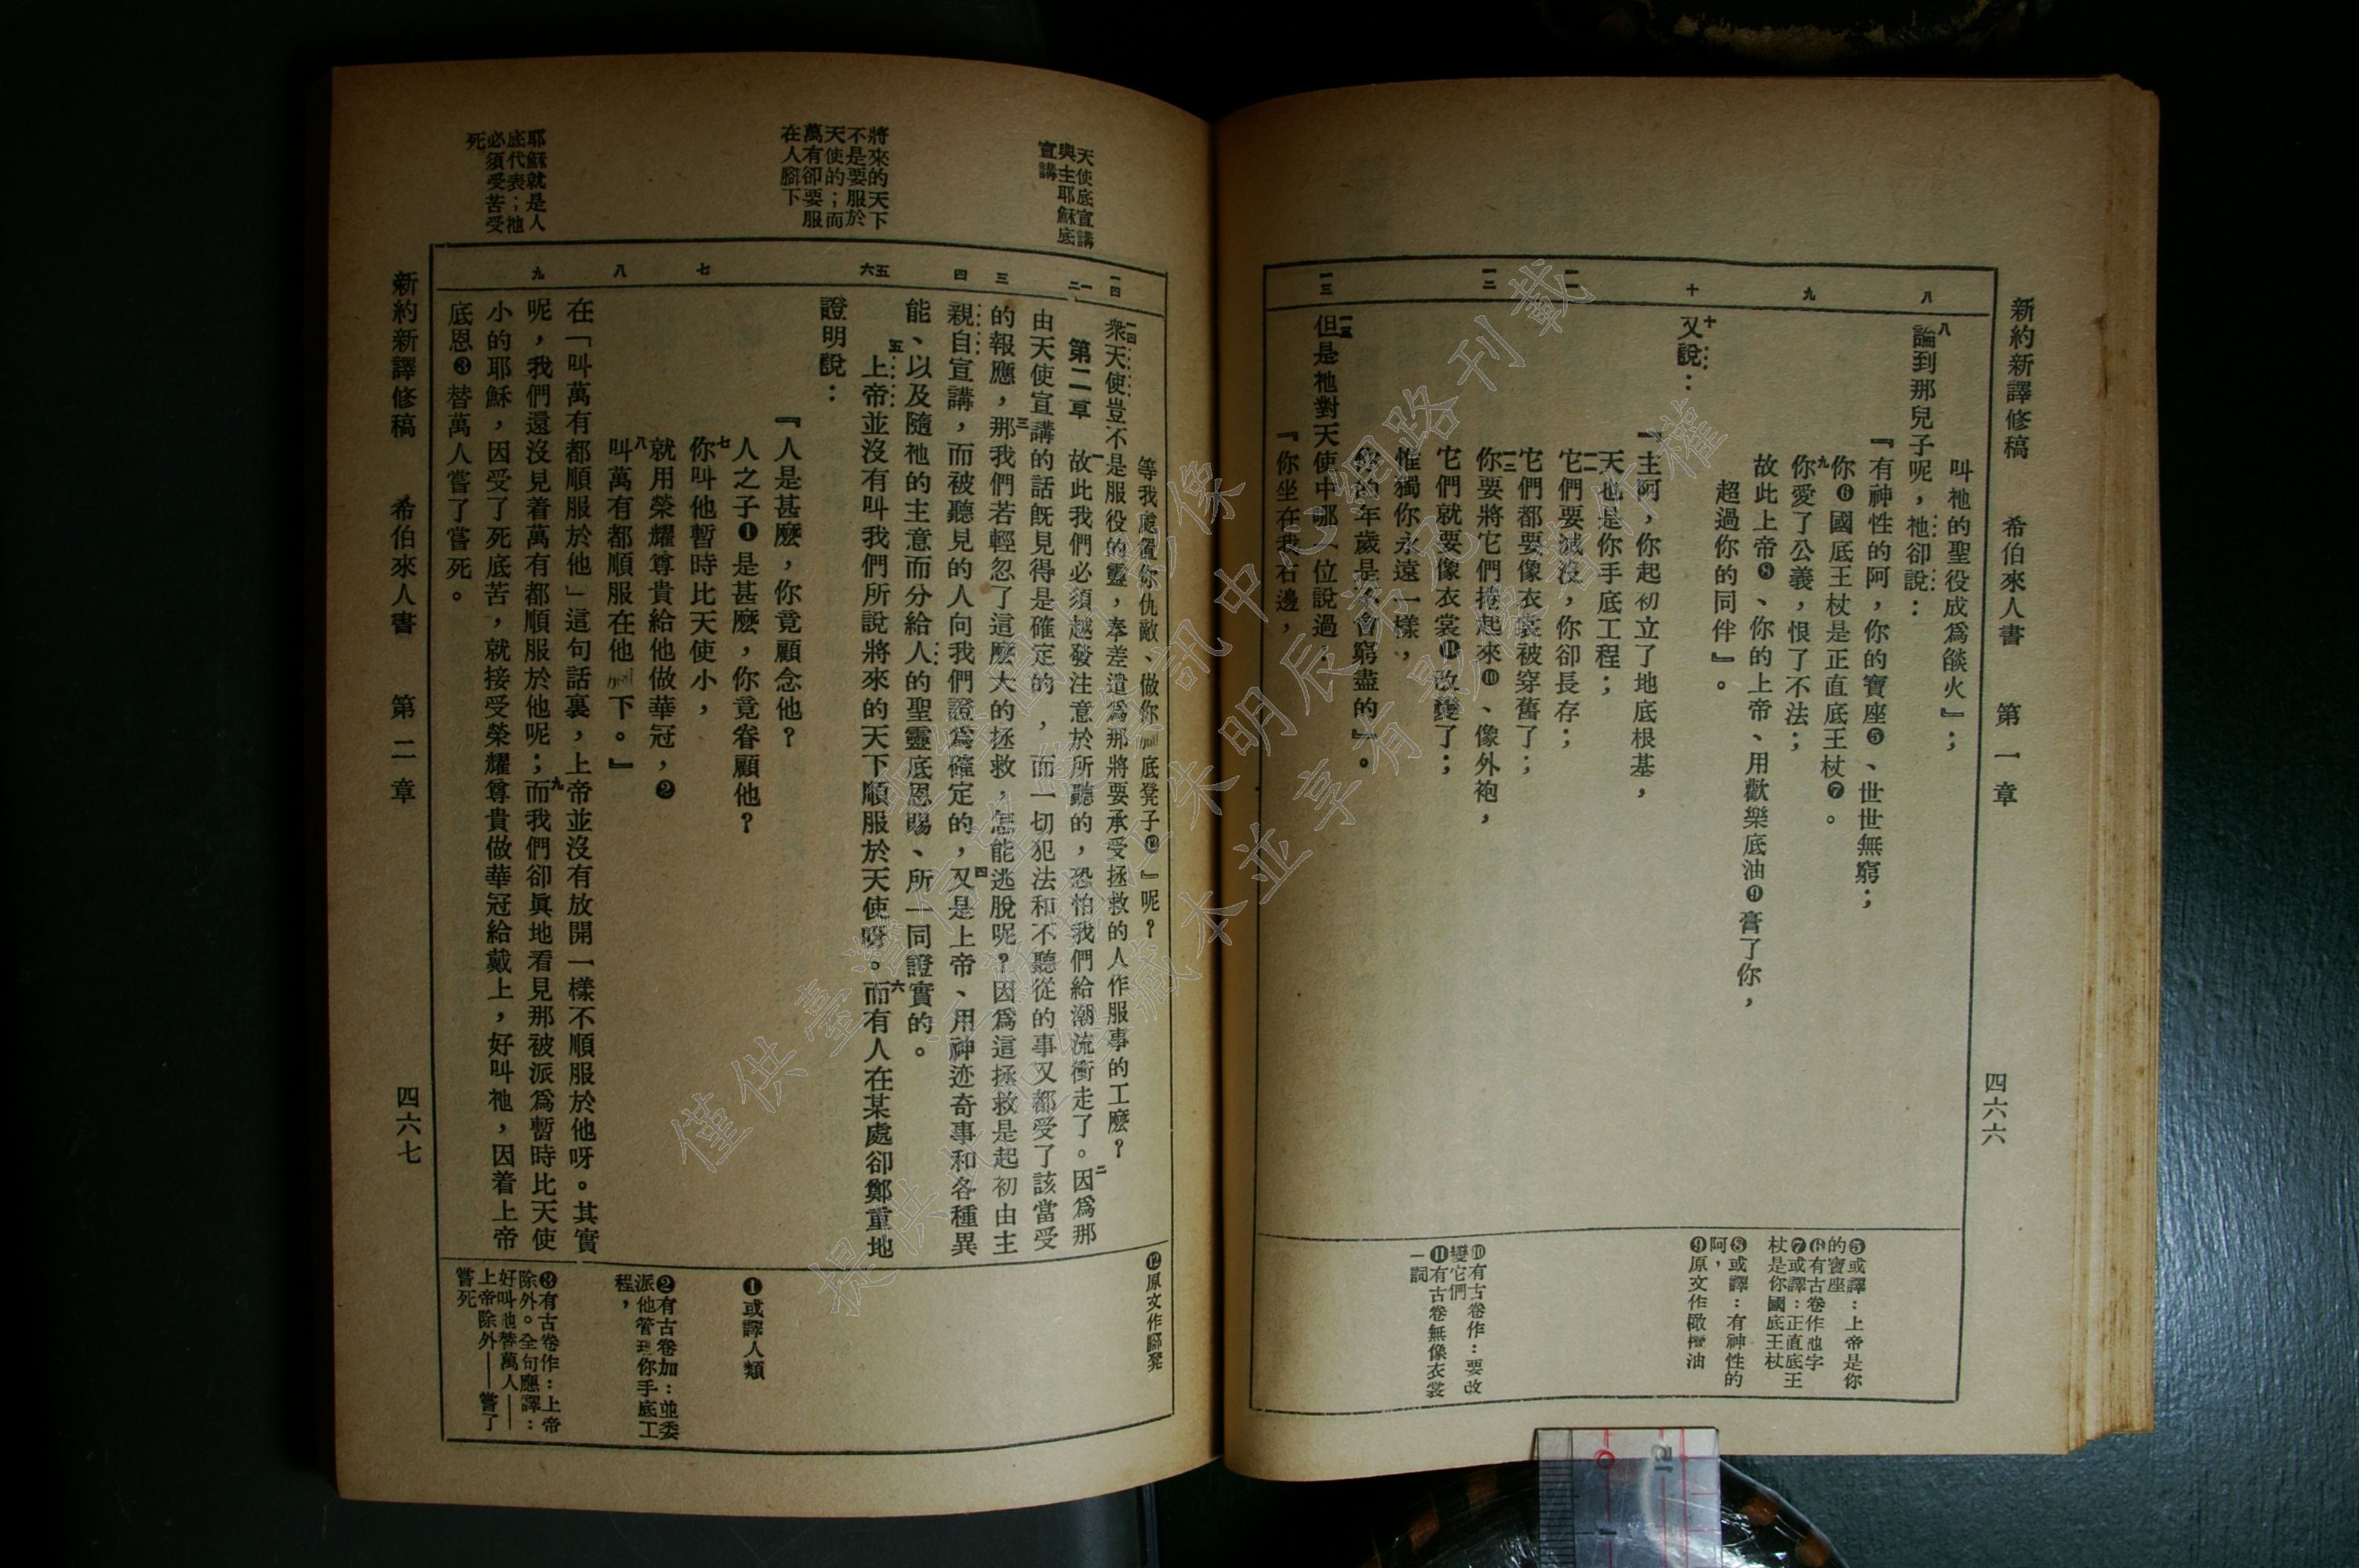 新約新譯修稿 希伯來人書 第一章 四六六
八 九 十 一一 一二 一三
叫祂的聖役成爲燄火』;
八論到那兒子呢,祂卻說:
『有神性的阿,你的寶座❺、世世無窮;
你❻國底王杖是正直底王杖❼。
九你愛了公義,恨了不法;
故此上帝❽、你的上帝、用歡樂底油❾膏了你,
超過你的同伴』。
十又說:
『主阿,你起初立了地底根基,
天也是你手底工程;
一一它們要滅沒,你卻長存;
它們都要像衣裳被穿舊了;
一二你要將它們捲起來❿、像外袍,
它們就要像衣裳⓫改變了;
惟獨你永遠一樣,
你的年歲是不會窮盡的』。
一三但是祂對天使中哪一位說過:
『你坐在我右邊,
❺或譯:上帝是你的寶座
❻有古卷作祂字
❼或譯:正直底王杖是你國底王杖
❽或譯:有神性的阿,
❾原文作橄欖油
❿有古卷作:要改變它們
⓫有古卷無像衣裳一詞
天使底宣講與主耶穌底宣講
將來的天下不是要服於天使的;而萬有卻要服在人腳下
耶穌就是人底代表;祂必須受苦受死
一四 一 二 三 四 五 六 七 八 九
等我處置你仇敵、做你腳底凳子⓬』呢?
一四衆天使豈不是服役的靈,奉差遣爲那將要承受拯救的人作服事的工麽?
第二章 一故此我們必須越發注意於所聽的,恐怕我們給潮流衝走了。二因爲那
由天使宣講的話旣見得是確定的,而一切犯法和不聽從的事又都受了該當受
的報應,三那我們若輕忽了這麽大的拯救,怎能逃脫呢?因爲這拯救是起初由主
親自宣講,而被聽見的人向我們證爲確定的,四又是上帝、用神迹奇事和各種異
能、以及隨祂的主意而分給人的聖靈底恩賜、所一同證實的。
五上帝並沒有叫我們所說將來的天下順服於天使呀。六而有人在某處卻鄭重地
證明說:
『人是甚麽,你竟顧念他?
人之子❶是甚麽,你竟眷顧他?
七你叫他暫時比天使小,
就用榮耀尊貴給他做華冠,❷
八叫萬有都順服在他腳下。』
在「叫萬有都順服於他」這句話裏,上帝並沒有放開一樣不順服於他呀。其實
呢,我們還沒見着萬有都順服於他呢;九而我們卻眞地看見那被派爲暫時比天使
小的耶穌,因受了死底苦,就接受榮耀尊貴做華冠給戴上,好叫祂,因着上帝
底恩❸替萬人嘗了嘗死。
⓬原文作腳凳
❶或譯人類
❷有古卷加:並委派他管理你手底工程,
❸有古卷作:上帝除外。全句應譯:好叫祂替萬人——上帝除外——嘗了嘗死
新約新譯修稿 希伯來人書 第二章 四六七